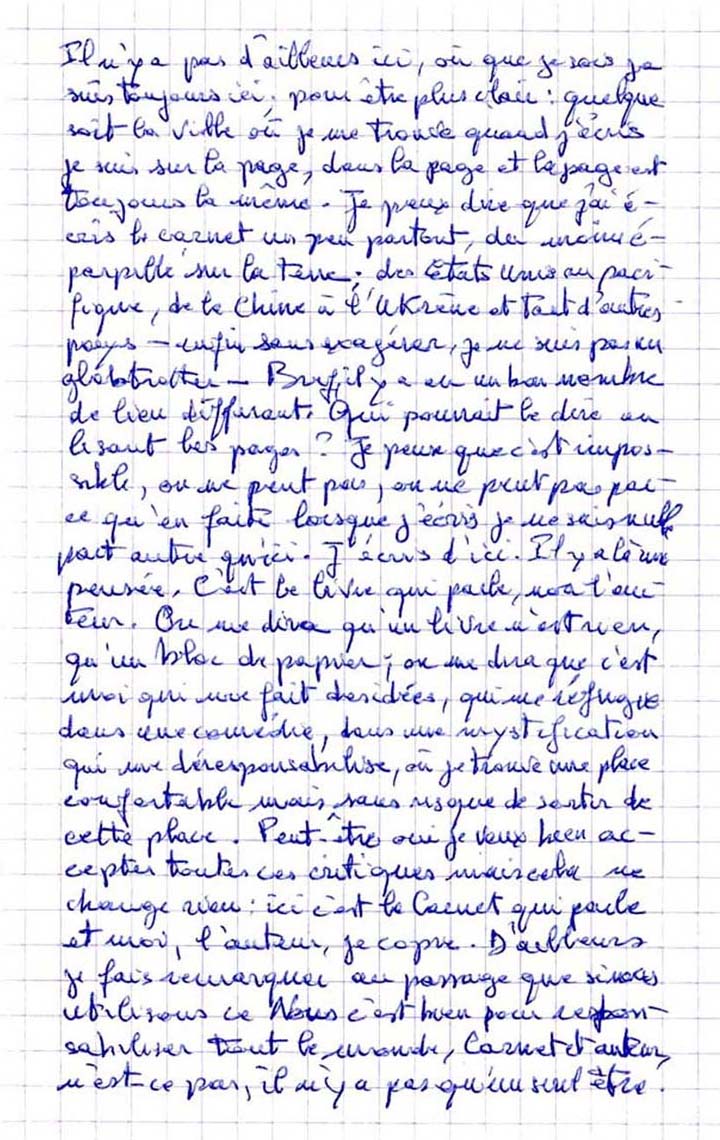 Il n'y a pas d'ailleurs ici, où que je sois je
suis toujours ici; pour être plus clair : quelque
soit la ville où je me trouve quand j'écris
je suis sur la page, dans la page et la page est
toujours la même. Je peux dire que j'ai é-
cris le carnet un peu partout, du moins é-
parpillé sur la terre; des États Unis au paci-
fique, de la Chine à l'Ukrène et tant d'autres
pays – enfin sans exagérer, je ne suis pas un
globtrotter – Bref il y a eu un bon nombre
de lieu différant. Qui pourrait le dire en
lisant les pages ? Je peux que c'est impos-
sible, on ne peut pas, on ne peut pas par-
ce qu'en faite lorsque j'écris je ne suis null
part autre qu'ici. J'écris d'ici. Il y a là une
pensée. C'est le livre qui parle, non l'au-
teur. On me dira qu'un livre n'est rien,
qu'un bloc de papier; on me dira que c'est
moi qui me fait des idées, qui me réfugie
dans une comédie, dans une mystification
qui me déresponsabilise, où je trouve une place
confortable mais sans risque de sortir de
cette place. Peut-être oui je veux bien ac-
cepter toutes ces critiques mais cela ne
change rien : ici c'est le Carnet qui parle
et moi, l'auteur, je copie. D'ailleurs
je fais remarquer au passage que si nous
utilisons ce Nous c'est bien pour respon-
sabiliser tout le monde, Carnet et auteur,
n'est-ce pas, il n'y a pas qu'un seul être.